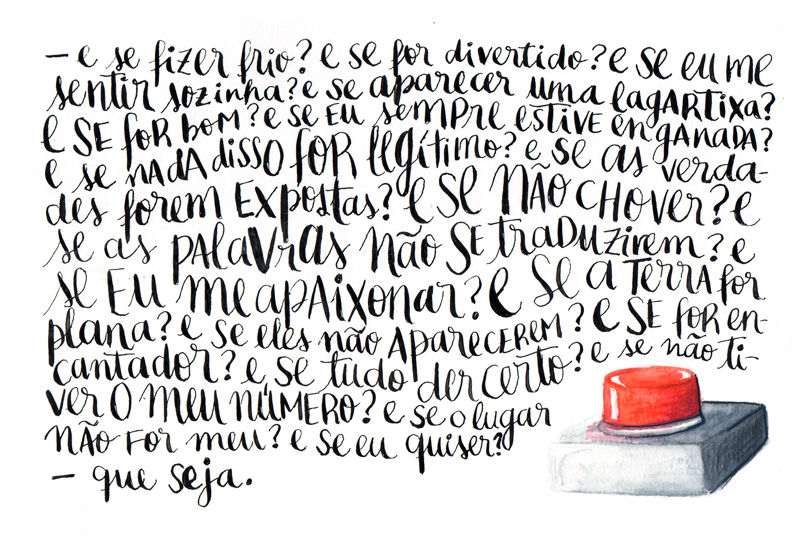 — e se fizer frio? e se for divertido? e se eu me
sentir sozinha? e se aparecer uma lagARTixa?
e SE foR BOM? e se EU SEMPRE ESTIVE enGANADA?
e se NADA disso FOR legítimo? e se as verda-
des forem EXPostas? e se NÃO CHOVER? e
se as PALAVRAS não SE traDUZIREM? e
se EU me APAixonar? e se A TERRA for
plana? e se eles não APARECEREM? e SE FOR en-
cantador? e se tudo der CERTO? e se não ti-
ver O MEU NÚMERO? e se o lugar
NÃO FOR meu? e se eu quiser?
— que seja.